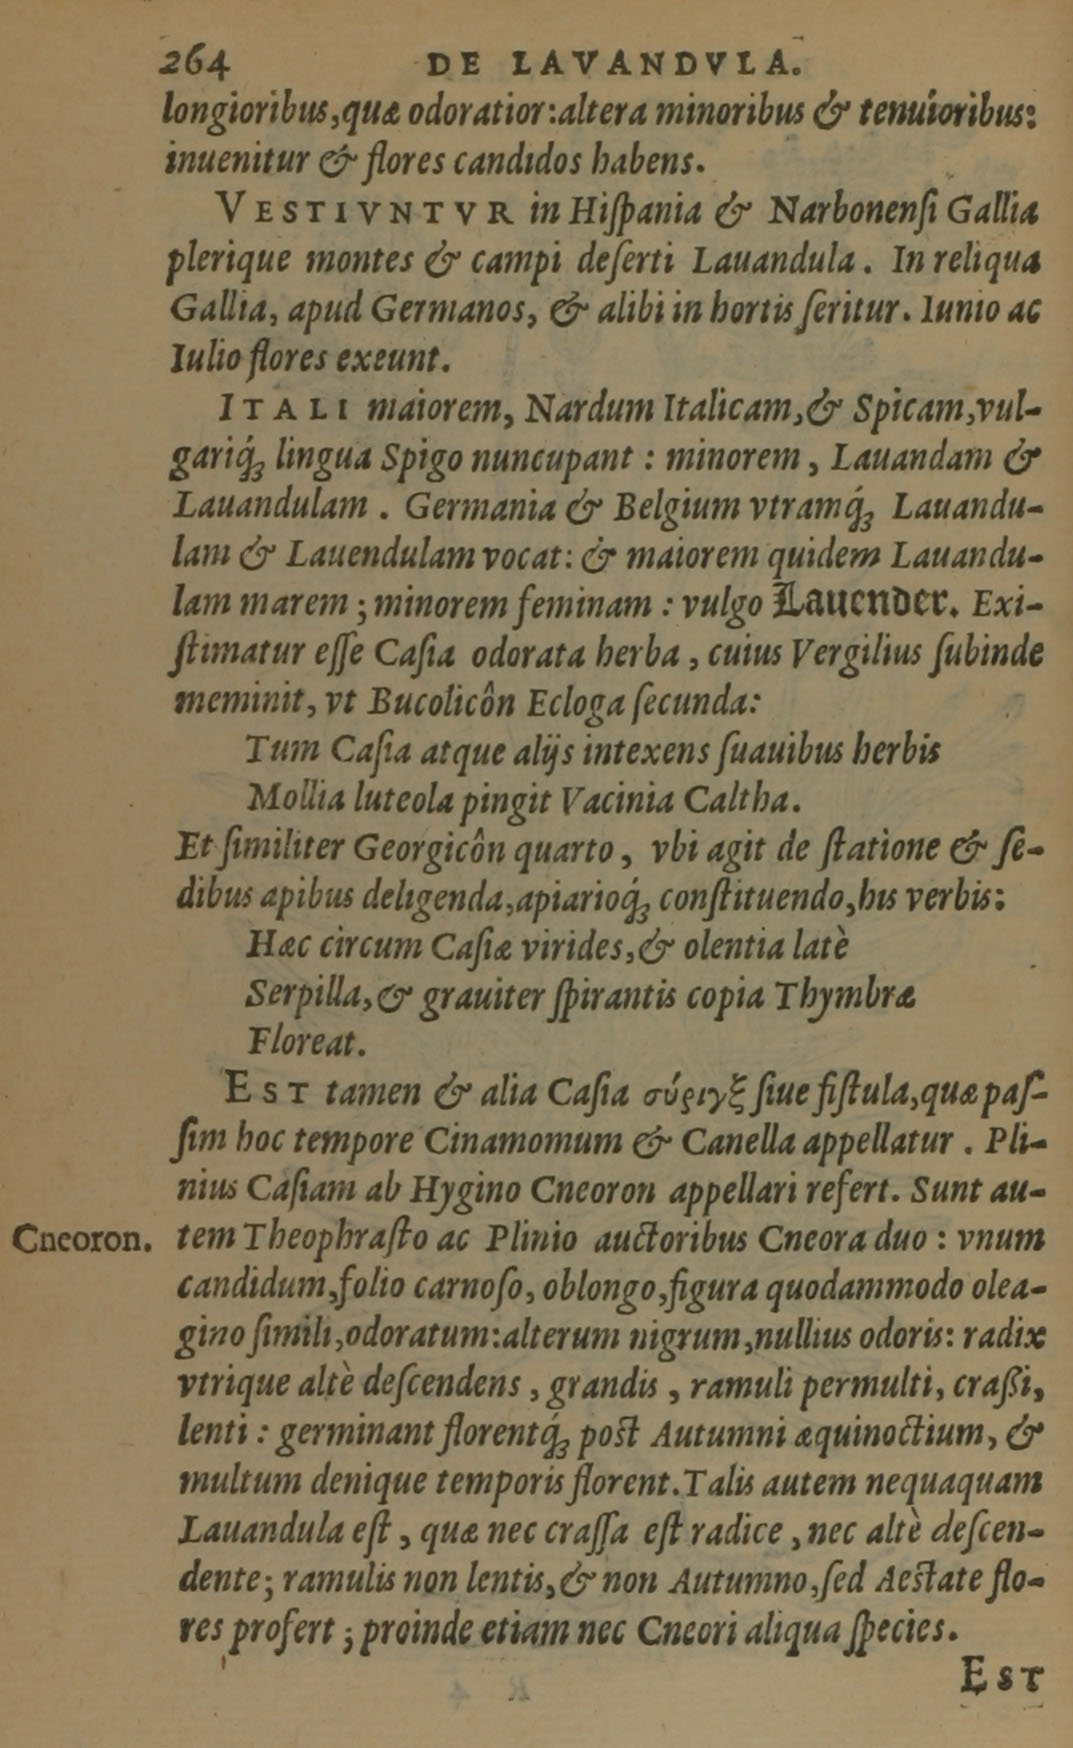 264 DE LAVANDVLA.
longioribus,quæ odoratior:altera minoribus & tenuioribus:
inuenitur & flores candidos habens.
VESTIVNTVR in Hiſpania & Narbonenſi Gallia
plerique montes & campi deſerti Lauandula. In reliqua
Gallia, apud Germanos, & alibi in hortis ſeritur. Iunio ac
Iulio flores exeunt.
ITALI maiorem, Nardum Italicam,& Spicam,vul-
gariq́ꝫ lingua Spigo nuncupant : minorem, Lauandam &
Lauandulam. Germania & Belgium vtramq́ꝫ Lauandu-
lam & Lauendulam vocat: & maiorem quidem Lauandu-
lam marem ; minorem feminam : vulgo Lauender. Exi-
ſtimatur eſſe Caſia odorata herba, cuius Vergilius ſubinde
meminit, vt Bucolicôn Ecloga ſecunda:
Tum Caſia atque alijs intexens ſuauibus herbis
Mollia luteola pingit Vacinia Caltha.
Et ſimiliter Georgicôn quarto, vbi agit de ſtatione & ſe-
dibus apibus deligenda,apiarioq́ꝫ conſtituendo,his verbis:
Hæc circum Caſiæ virides,& olentia latè
Serpilla,& grauiter ſpirantis copia Thymbræ
Floreat.
EST tamen & alia Caſia σύριγξ ſiue fiſtula,quæ paſ-
ſim hoc tempore Cinamomum & Canella appellatur. Pli-
nius Caſiam ab Hygino Cneoron appellari refert. Sunt au-
Cneoron. tem Theophraſto ac Plinio auctoribus Cneora duo : vnum
candidum,folio carnoſo, oblongo,figura quodammodo olea-
gino ſimili,odoratum:alterum nigrum,nullius odoris: radix
vtrique altè deſcendens, grandis, ramuli permulti, craßi,
lenti : germinant florentq́ꝫ poſt Autumni æquinoctium, &
multum denique temporis florent. Talis autem nequaquam
Lauandula eſt, quæ nec craſſa eſt radice, nec altè deſcen-
dente; ramulis non lentis,& non Autumno,ſed Aeſtate flo-
res profert ; proinde etiam nec Cneori aliqua ſpecies.
EST